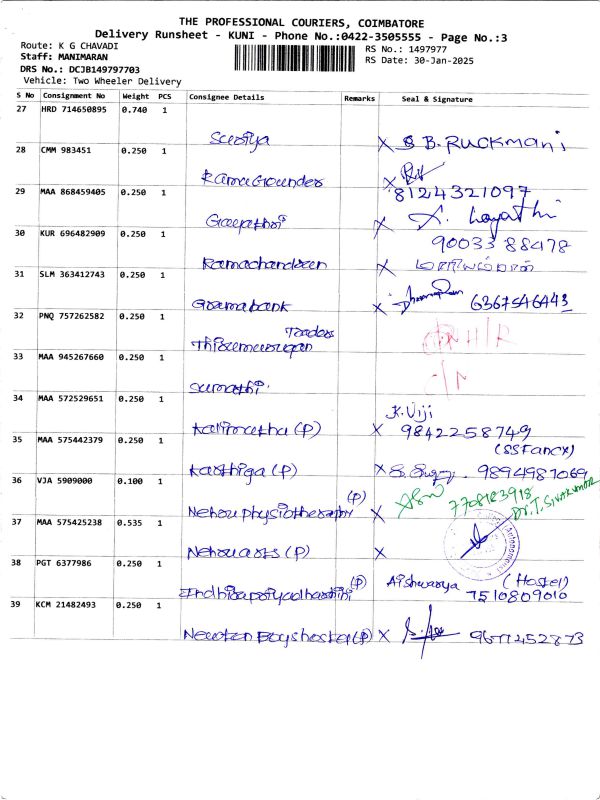 THE PROFESSIONAL COURIERS, COIMBATORE
Delivery Runsheet - KUNI - Phone No.:0422-3505555 - Page No.:3
Route: K G CHAVADI
RS No.: 1497977
Staff: MANIMARAN
RS Date: 30-Jan-2025
DRS No.: DCJB149797703
Vehicle: Two Wheeler Delivery
S No Consignment No Weight PCS Consignee Details Remarks Seal & Signature
27 HRD 714650895 0.740 1
Suriya X B. RUCKMANi
28 CMM 983451 0.250 1
RamaGounder X
29 MAA 868459405 0.250 1 8124321097
Gayathri X
30 KUR 696482909 0.250 1 90033 88478
Ramachandran X
31 SLM 363412743 0.250 1
Gramabank X 6367546443
32 PNQ 757262582 0.250 1
Traders
Thirumurugan
33 MAA 945267660 0.250 1
Sumathi
34 MAA 572529651 0.250 1 K. Viji
Kavimetha (P) X 9842258749
35 MAA 575442379 0.250 1 (SSFancy)
Karthiga (P) X 9894987069
36 VJA 5909000 0.100 1 7708183918
Dr. T. SIVAKUMAR
(P)
Nehru physiotheraphy X
37 MAA 575425238 0.535 1
Nehru arts (P) X
38 PGT 6377986 0.250 1
(P) Aishwarya (Hostel)
Indhirapriyadharshini 7510809010
39 KCM 21482493 0.250 1
Newton Boys hostel (P) X 9677452873